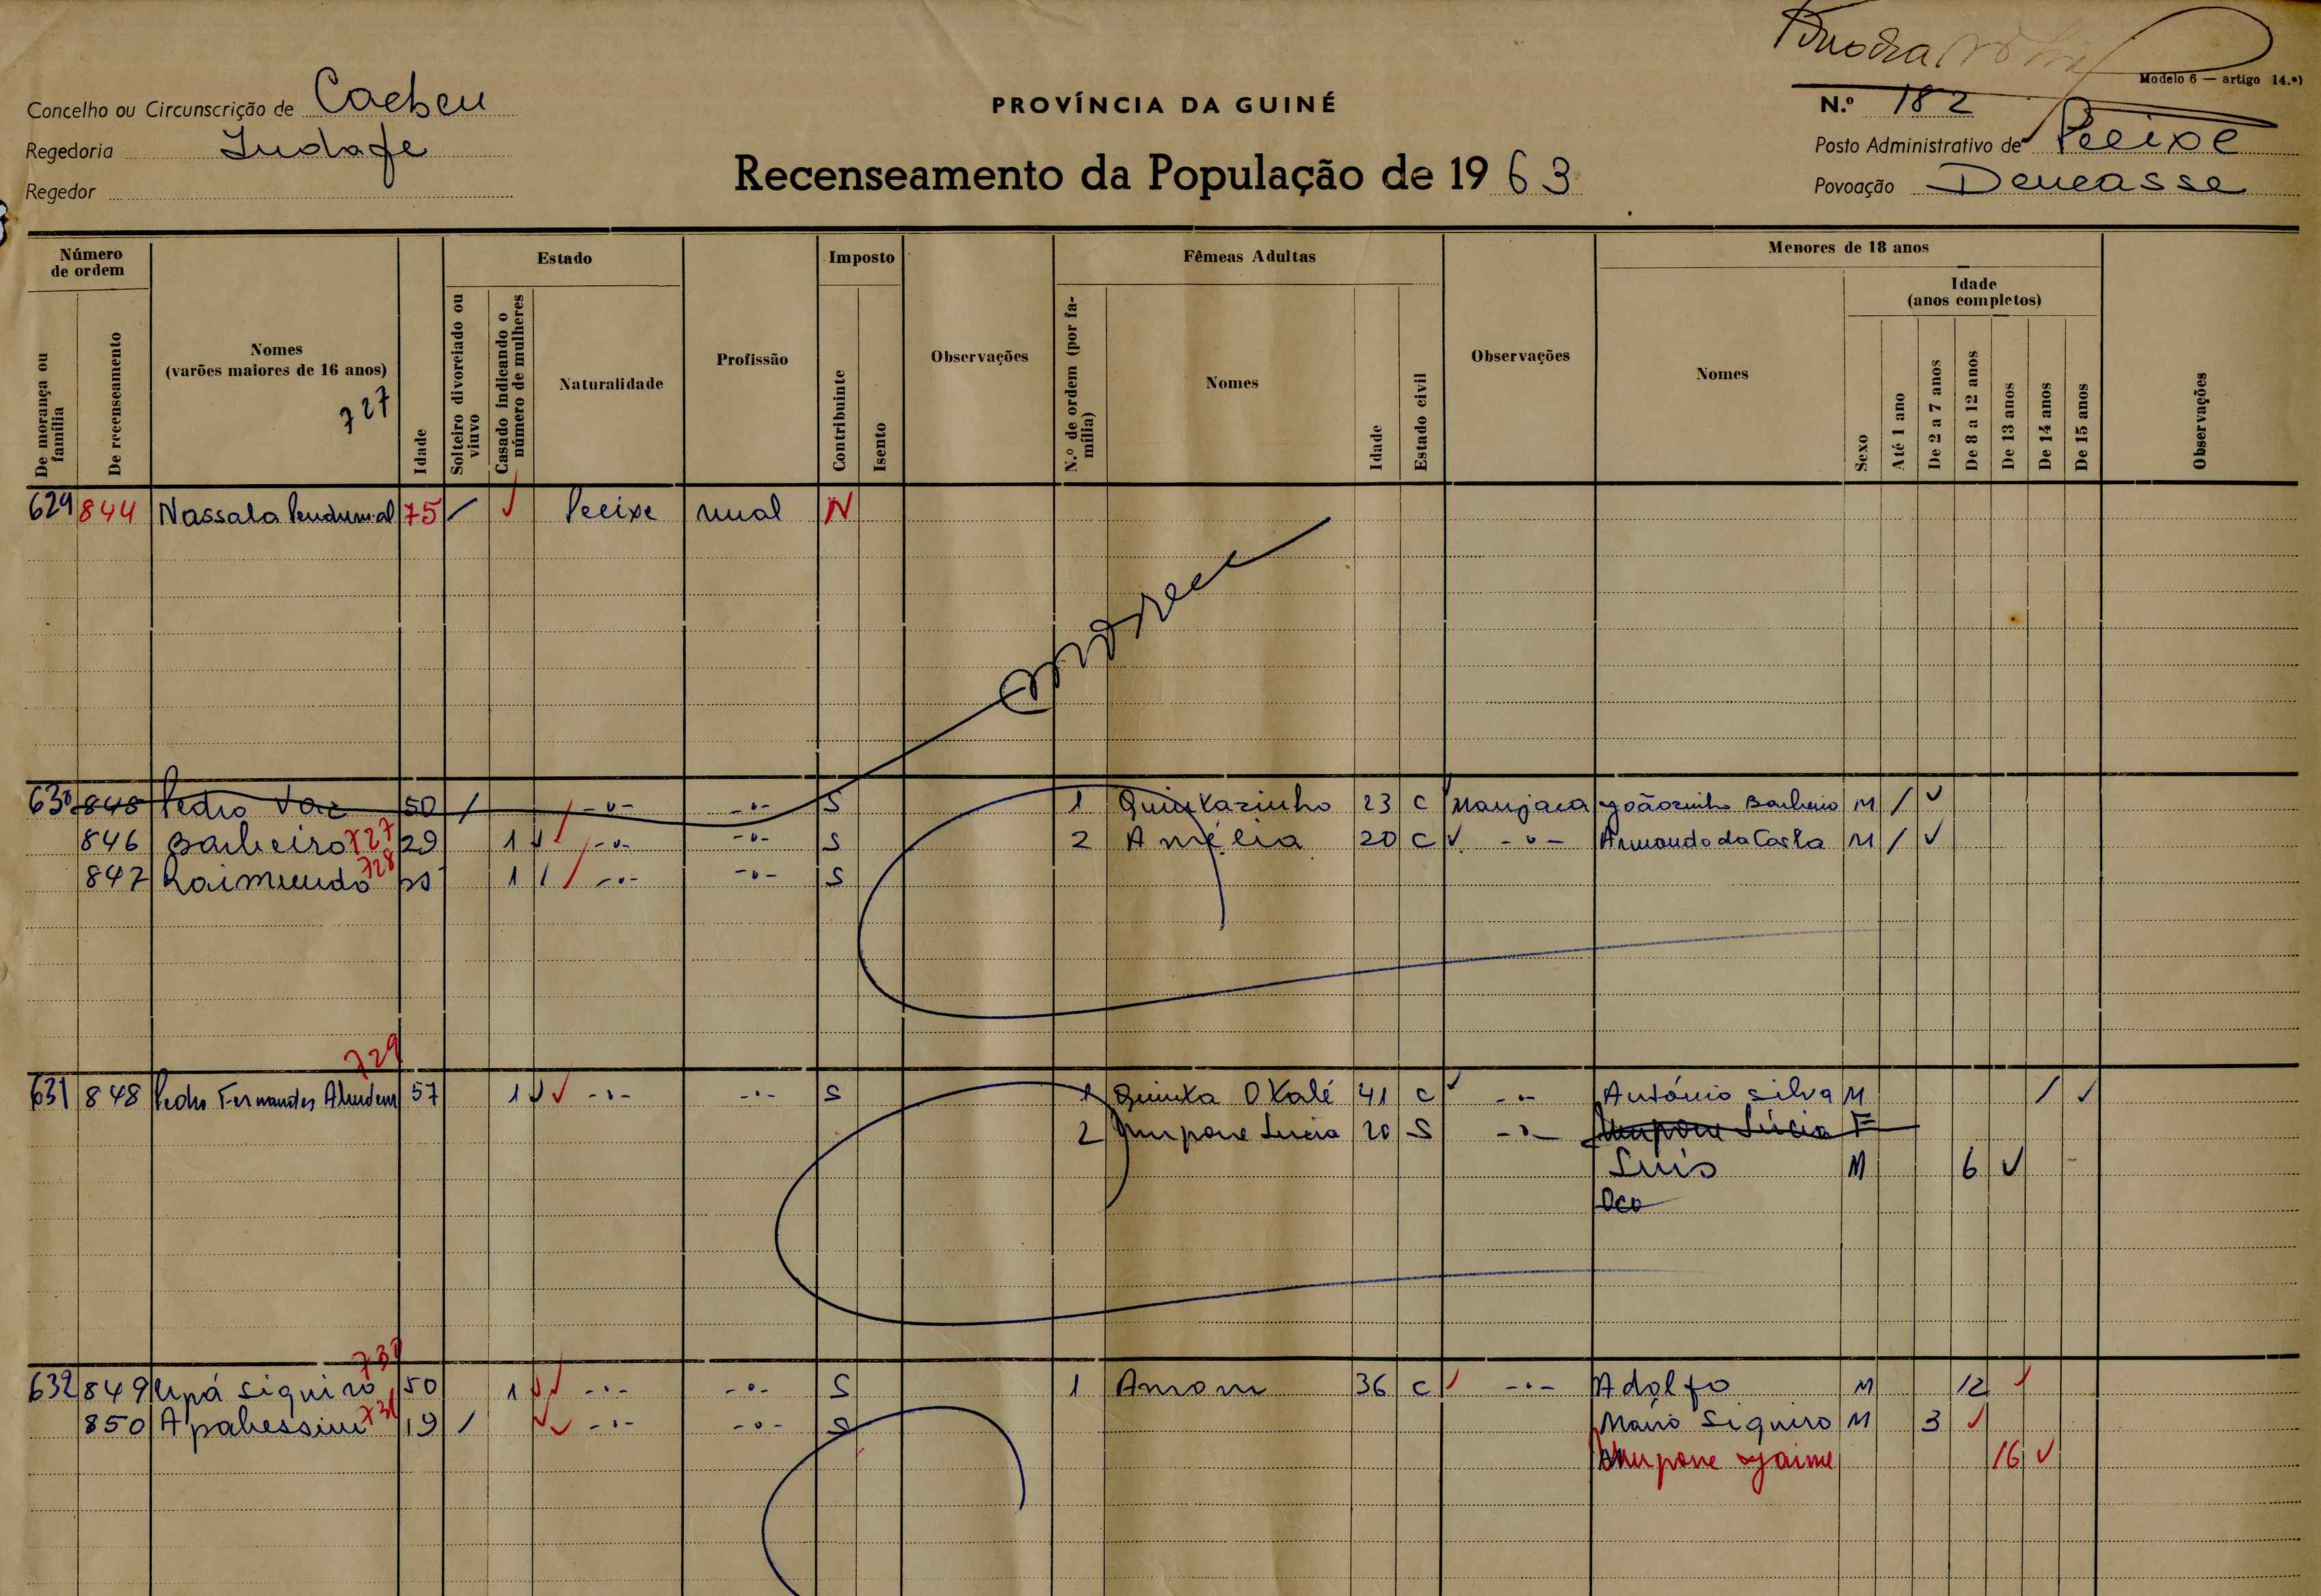 Modelo 6 — artigo 14.º)
Concelho ou Circunscrição de Caebeu
PROVÍNCIA DA GUINÉ
N.º 182
Regedoria Indafe
Posto Administrativo de Pecixe
Recenseamento da População de 1963
Regedor
Povoação Deneasse
Número de ordem
Estado
Imposto
Fêmeas Adultas
Menores de 18 anos
Idade (anos completos)
De morança ou família
De recenseamento
Nomes (varões maiores de 16 anos)
727
Idade
Solteiro divorciado ou viuvo
Casado indicando o número de mulheres
Naturalidade
Profissão
Contribuinte
Isento
Observações
N.º de ordem (por família)
Nomes
Idade
Estado civil
Observações
Nomes
Sexo
Até 1 ano
De 2 a 7 anos
De 8 a 12 anos
De 13 anos
De 14 anos
De 15 anos
Observações
629 844 Nassala 75 / ✓ Pecixe rual N
630 845 Pedro Vaz 50 / -o- -o- S 1 Quinkarinho 23 C Manjaca Joãozinho Barbeiro M / ✓
846 Barbeiro 727 29 1 ✓ -o- -o- S 2 Amélia 20 C ✓ -o- Armando da Costa M / ✓
847 Raimundo 728 1 / / -o- -o- S
729
631 848 Pedro Fernandes 57 1 ✓ ✓ -o- -o- S 1 Quinta Okalé 41 C ✓ -o- António Silva M / ✓
2 Ampone Lucia 20 S -o- Ampone Lúcia F
Luis M 6 ✓
Oco
730
632 849 Upá Siquiro 50 1 ✓ ✓ -o- -o- S 1 Amom 36 C ✓ -o- Adolfo M 12 ✓
850 Apabessim 731 19 / ✓ ✓ -o- -o- S Mário Siquiro M 3 ✓
Ampone Jaime 16 ✓